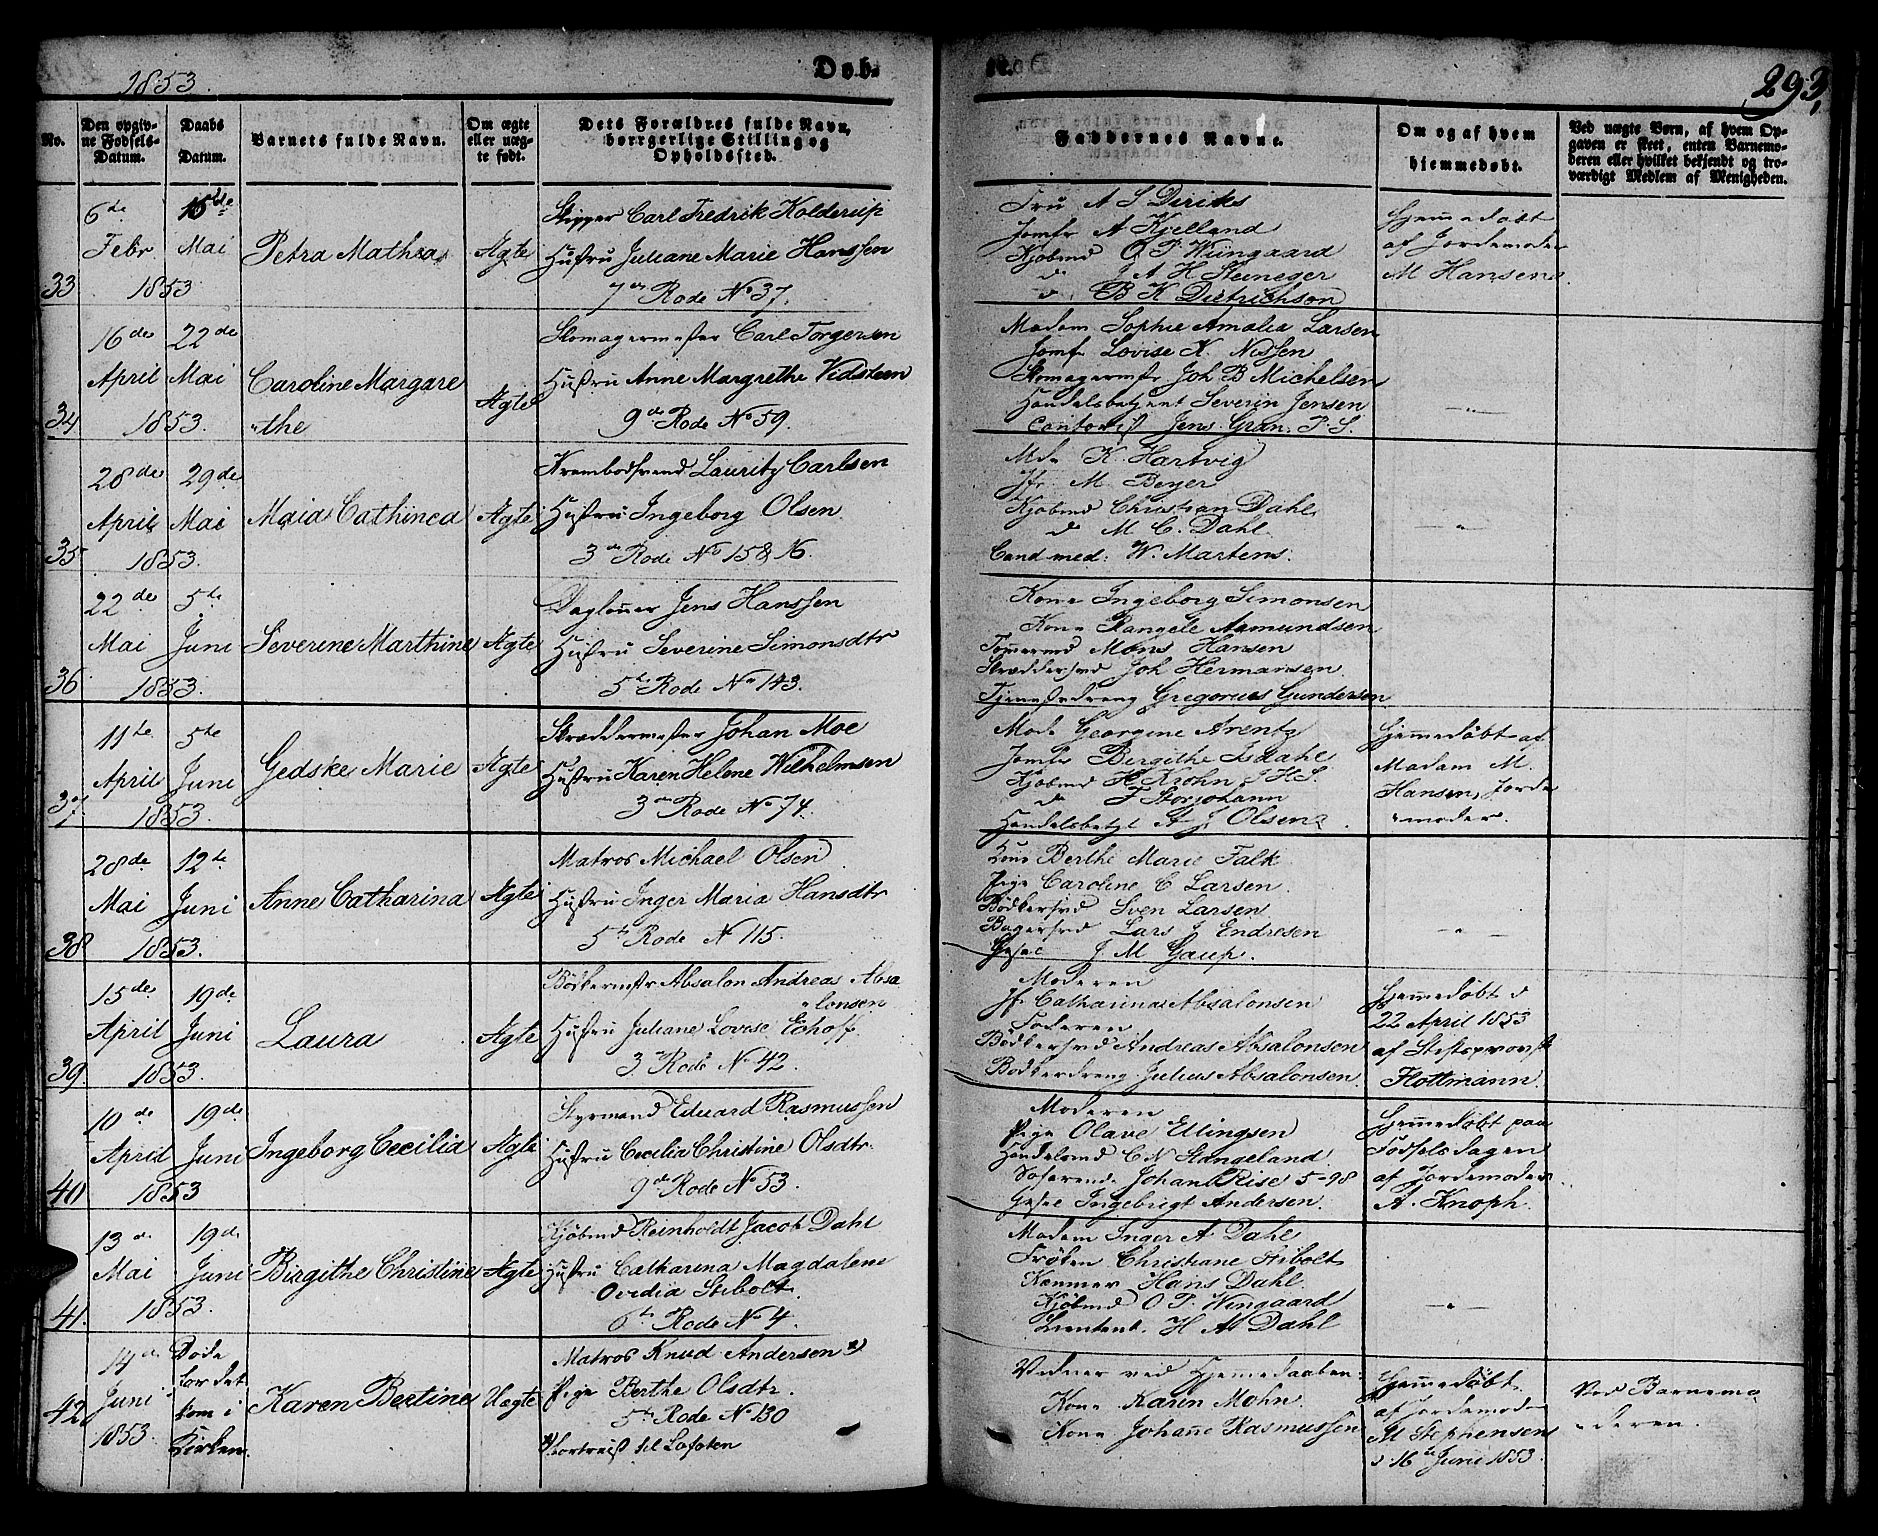 1853.
Døb-
te.
293,
No.
Den opgiv-
ne Fødsels-
Datum.
Daabs
Datum.
Barnets fulde Navn.
Om ægte
eller uæg-
te født.
Dets Forældres fulde Navn,
borgerlige Stilling og
Opholdssted.
Faddernes Navne.
Om og af hvem
hjemmedøbt.
Ved uægte Børn, af hvem Op-
gaven er skeet, enten Barnemo-
deren eller hvilket bekjendt og tro-
værdigt Medlem af Menigheden.
33
6de
Febr
1853
16de
Mai
Petra Mathea
Ægte
Skipper Carl Fredrik Kolderup
Hustru Juliane Marie Hanssen
7de Rode No 37.
Fru A S Diriks
Jomfr A Kjelland
Kjøbmd O P Wiingaard
do J A H Steneger
do B K Dietrichson
Hjemmedøbt
af Jordemoder
M Hansen.
34
16de
April
1853.
22de
Mai
Caroline Margare
"the
Ægte
Skomagermester Carl Torgersen
Hustru Anne Margrethe Vidsteen
9de Rode No 59.
Madam Sophie Amalia Larsen
Jomf Lovise K. Nissen
Skomagermstr Joh B Michelsen
Handelsbetjent Severin Jensen
Cantorist Jens Gran. P. S.
— " —
35
28de
April
1853.
29de
Mai
Maia Cathinca
Ægte
Krambodsvend Lauritz Carlsen
Hustru Ingeborg Olsen
3de Rode No 15 & 16.
Mdm K. Hartvig
Jfr M. Beyer
Kjøbmd Christian Dahl
do M C. Dahl.
Cand med. W. Martens.
— " —
36
22de
Mai
1853.
5te
Juni
Severine Marthine
Ægte
Dagleier Jens Hanssen
Hustru Severine Simonsdtr
5te Rode No 143.
Kone Ingeborg Simonsen
Kone Rangele Asmundsen
Tømmermd Mons Hansen
Skræddersvd Joh Hermansen
Tjenestedreng Gregorius Gundersen
37.
11te
April
1853.
5te
Juni
Gedske Marie
Ægte
Skræddermester Johan Moe
Hustru Karen Helene Wilhelmsen
3de Rode No 74.
Mads Georgine Arentz
Jomfr Birgithe Isdahl
Kjøbmd H Krohn J H S.
do F Storjohann
Handelsbetjt A J Olsen.
Hjemmedøbt af
Madam M.
Hansen, Jorde
"moder.
38.
28de
Mai
1853.
12te
Juni
Anne Catharina
Ægte
Matros Michael Olsen
Hustru Inger Maria Hansdtr
5te Rode N 115.
Kone Berthe Marie Falk
Pige Caroline C Larsen.
Bødkersvd Sven Larsen
Bagersvd Lars J Endresen
J M Gaup.
— " —
39.
15de
April
1853.
19de
Juni
Laura
Ægte
Bødkermstr Absalon Andreas Absa
"lonsen
Hustru Juliane Lovise Echoff
3 Rode No 42.
Moderen
Jf Catharina Absalonsen
Faderen
Bødkersvd Andreas Absalonsen
Bødkerdreng Julius Absalonsen
Hjemmedøbt d
22 April 1853
af Stiftsprovst
Hottmann.
40
10de
April
1853
19de
Juni
Ingeborg Cecilia
Ægte
Styrmand Eduard Rasmussen
Hustru Cecilia Christine Olsdtr.
9de Rode No 53.
Moderen
Pige Olave Ellingsen
Handelsmd C N Stangeland
Søfarende Johan Riise 5-98
Ingebrigt Andersen.
Hjemmedøbt paa
Fødselsdagen
af Jordemoder
A. Knoph.
41.
13de
Mai
1853.
19de
Juni
Birgithe Christine
Ægte
Kjøbmd Reinholdt Jacob Dahl
Hustru Catharina Magdalene
Ovidia Stibolt.
6te Rode No 4.
Madam Inger A Dahl
Frøken Christiane Stibolt
Kæmner Hans Dahl.
Kjøbmd O P. Wingaard
Lieutent. H A Dahl
— " —
42.
14de
Juni
1853.
Døde
før det
kom i
Kirken
Karen Bertine
Uægte
Matros Knud Andersen *)
Pige Berthe Olsdtr.
5te Rode N 130
*) bortreist til Lofoten
Vidner ved Hjemmedaaben:
Kone Karen Mohn.
Kone Johanne Rasmussen
Hjemmedøbt
af Jordemoder
M Stephensen
d 16de Juni 1853.
Ved Barnemo
"deren.